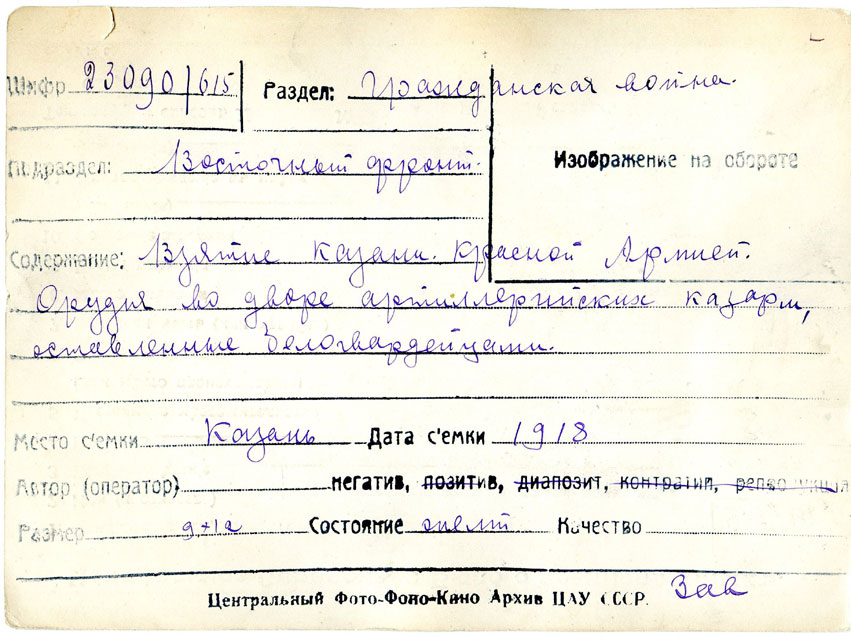 Шифр 23090/615 Раздел: Гражданская война.
Подраздел: Восточный фронт.
Изображение на обороте
Содержание: Взятие Казани Красной Армией.
Орудия во дворе артиллерийских казарм,
оставленные белогвардейцами.
Место с'емки Казань Дата с'емки 1918
Автор (оператор) негатив, позитив, диапозит, контратип,
Размер 9+12 Состояние Качество
Центральный Фото-Фоно-Кино Архив ЦАУ СССР. Зав